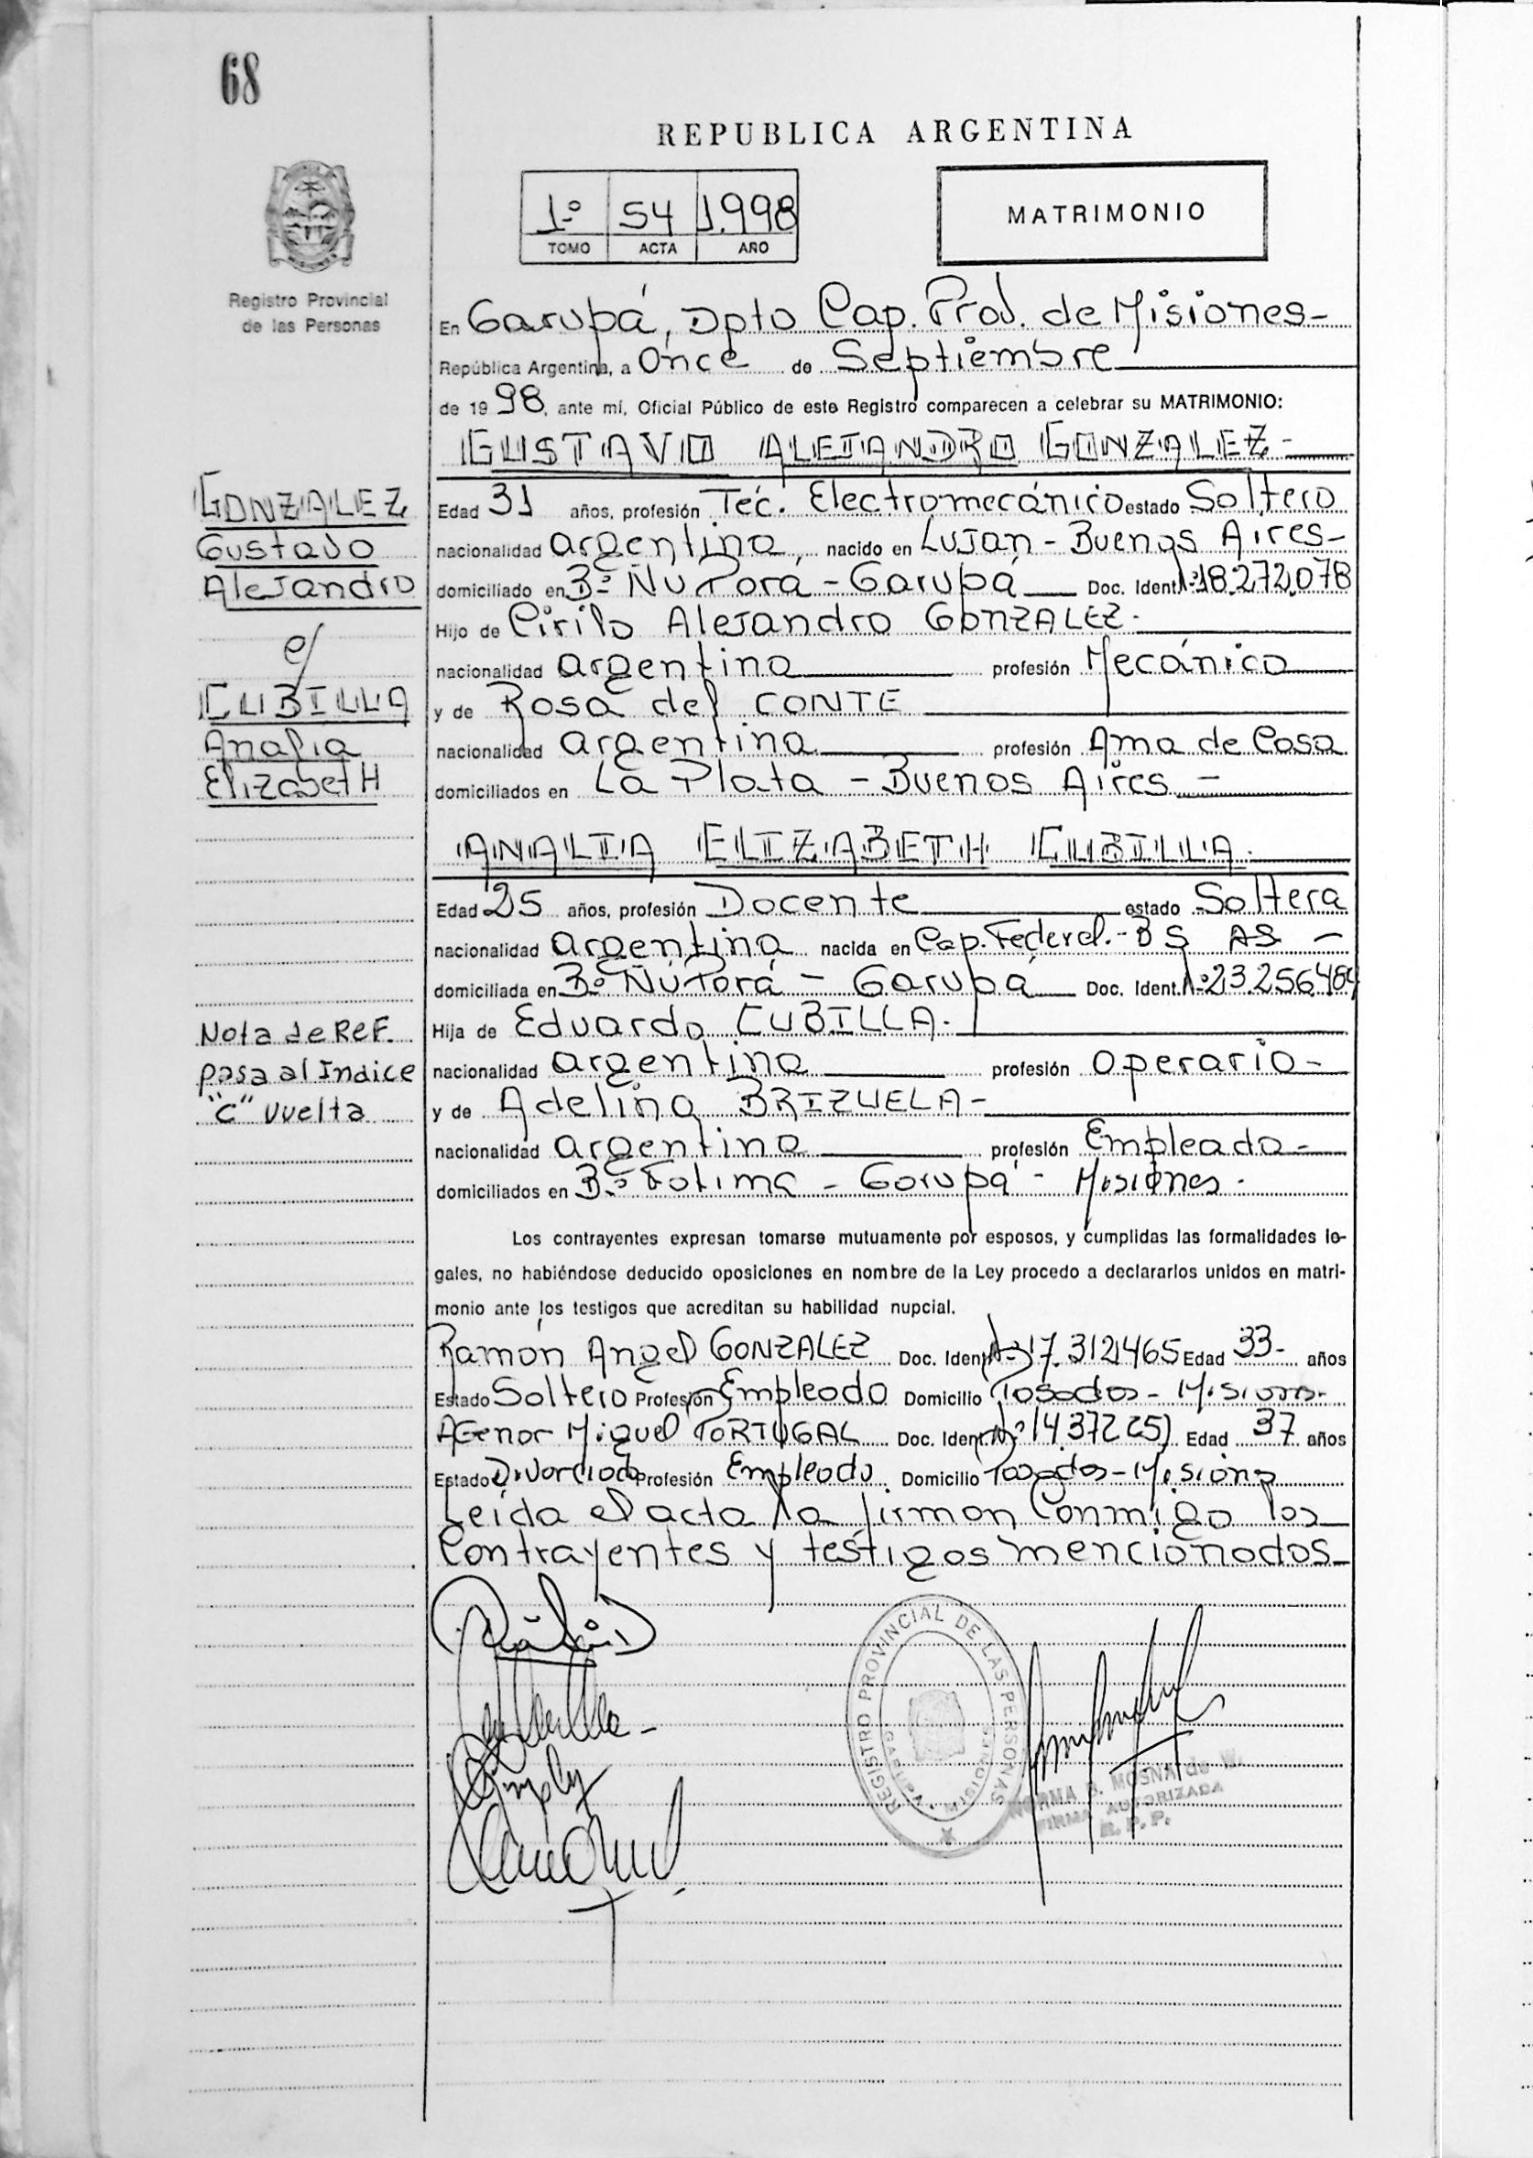 68
REPUBLICA ARGENTINA
1º 54 1.998
TOMO ACTA AÑO
MATRIMONIO
Registro Provincial
de las Personas
En Garupá, Dpto Cap. Prov. de Misiones-
República Argentina, a Once de Septiembre
de 1998, ante mí, Oficial Público de este Registro comparecen a celebrar su MATRIMONIO:
GUSTAVO ALEJANDRO GONZALEZ-
GONZALEZ
Gustavo
Alejandro
c/
CUBILLA
Analia
Elizabeth
Edad 31 años, profesión Tec. Electromecánico estado Soltero
nacionalidad argentina, nacido en Lujan - Buenos Aires-
domiciliado en Bº Ñu Porá - Garupá Doc. Ident. Nº 18.272.078
Hijo de Cirilo Alejandro GONZALEZ.
nacionalidad argentina profesión Mecánico
y de Rosa del CONTE
nacionalidad argentina profesión Ama de Casa
domiciliados en La Plata - Buenos Aires -
ANALIA ELIZABETH CUBILLA.
Edad 25 años, profesión Docente estado Soltera
nacionalidad argentina nacida en Cap. Federal.- BS AS -
domiciliada en Bº Ñú Porá - Garupá Doc. Ident. Nº 23.256.484
Hija de Eduardo CUBILLA.
nacionalidad argentina profesión operario-
y de Adelina BRIZUELA-
nacionalidad argentina profesión Empleada-
domiciliados en Bº Fatima - Garupá - Misiones.
Nota de Ref.
pasa al Indice
"C" vuelta
Los contrayentes expresan tomarse mutuamente por esposos, y cumplidas las formalidades le-
gales, no habiéndose deducido oposiciones en nombre de la Ley procedo a declararlos unidos en matri-
monio ante los testigos que acreditan su habilidad nupcial.
Ramón Angel GONZALEZ Doc. Ident. Nº 17.312.465 Edad 33- años
Estado Soltero Profesión Empleado Domicilio Posadas - Misiones-
Agenor Miguel PORTUGAL Doc. Ident. Nº 14.372.251 Edad 37 años
Estado Divorciado Profesión Empleado Domicilio Posadas - Misiones
Leída el acta la firman Conmigo los
Contrayentes y testigos mencionados-
REGISTRO PROVINCIAL DE LAS PERSONAS
GARUPA MISIONES
NORMA B. MOSNA de W.
FIRMA AUTORIZADA
R. P. P.